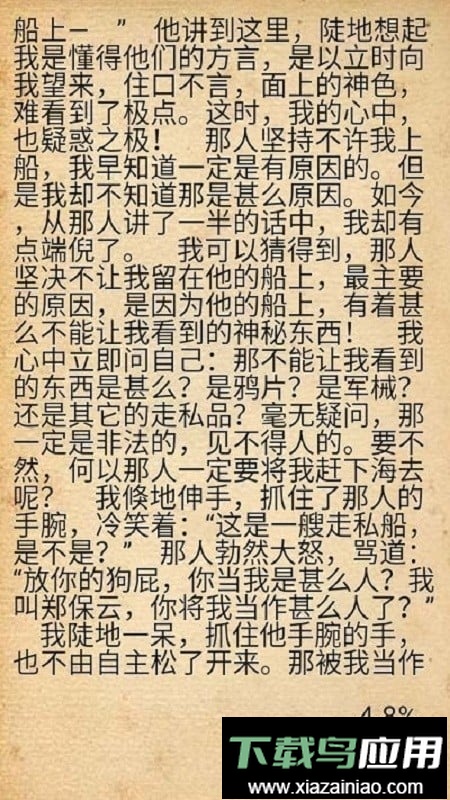 船上—　”　他讲到这里，陡地想起
我是懂得他们的方言，是以立时向
我望来，住口不言，面上的神色，
难看到了极点。这时，我的心中，
也疑惑之极！　那人坚持不许我上
船，我早知道一定是有原因的。但
是我却不知道那是甚么原因。如今
，从那人讲了一半的话中，我却有
点端倪了。　我可以猜得到，那人
坚决不让我留在他的船上，最主要
的原因，是因为他的船上，有着甚
么不能让我看到的神秘东西！　我
心中立即问自己：那不能让我看到
的东西是甚么？是鸦片？是军械？
还是其它的走私品？毫无疑问，那
一定是非法的，见不得人的。要不
然，何以那人一定要将我赶下海去
呢？　我倏地伸手，抓住了那人的
手腕，冷笑着：“这是一艘走私船，
是不是？”　那人勃然大怒，骂道：
“放你的狗屁，你当我是甚么人？我
叫郑保云，你将我当作甚么人了？”
　我陡地一呆，抓住他手腕的手，
也不由自主松了开来。那被我当作
4.8%
下载鸟应用
www.xiazainiao.com